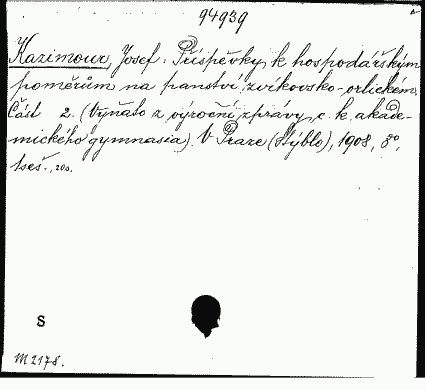 94939
Kazimour, Josef: Příspěvky k hospodářským
poměrům na panství zvíkovsko-orlickém.
Část 2. (Vyňato z výroční zprávy c. k. akade-
mického gymnasia). V Praze (Stýblo), 1908, 8°,
1 seš., 200.
S
M 2178.